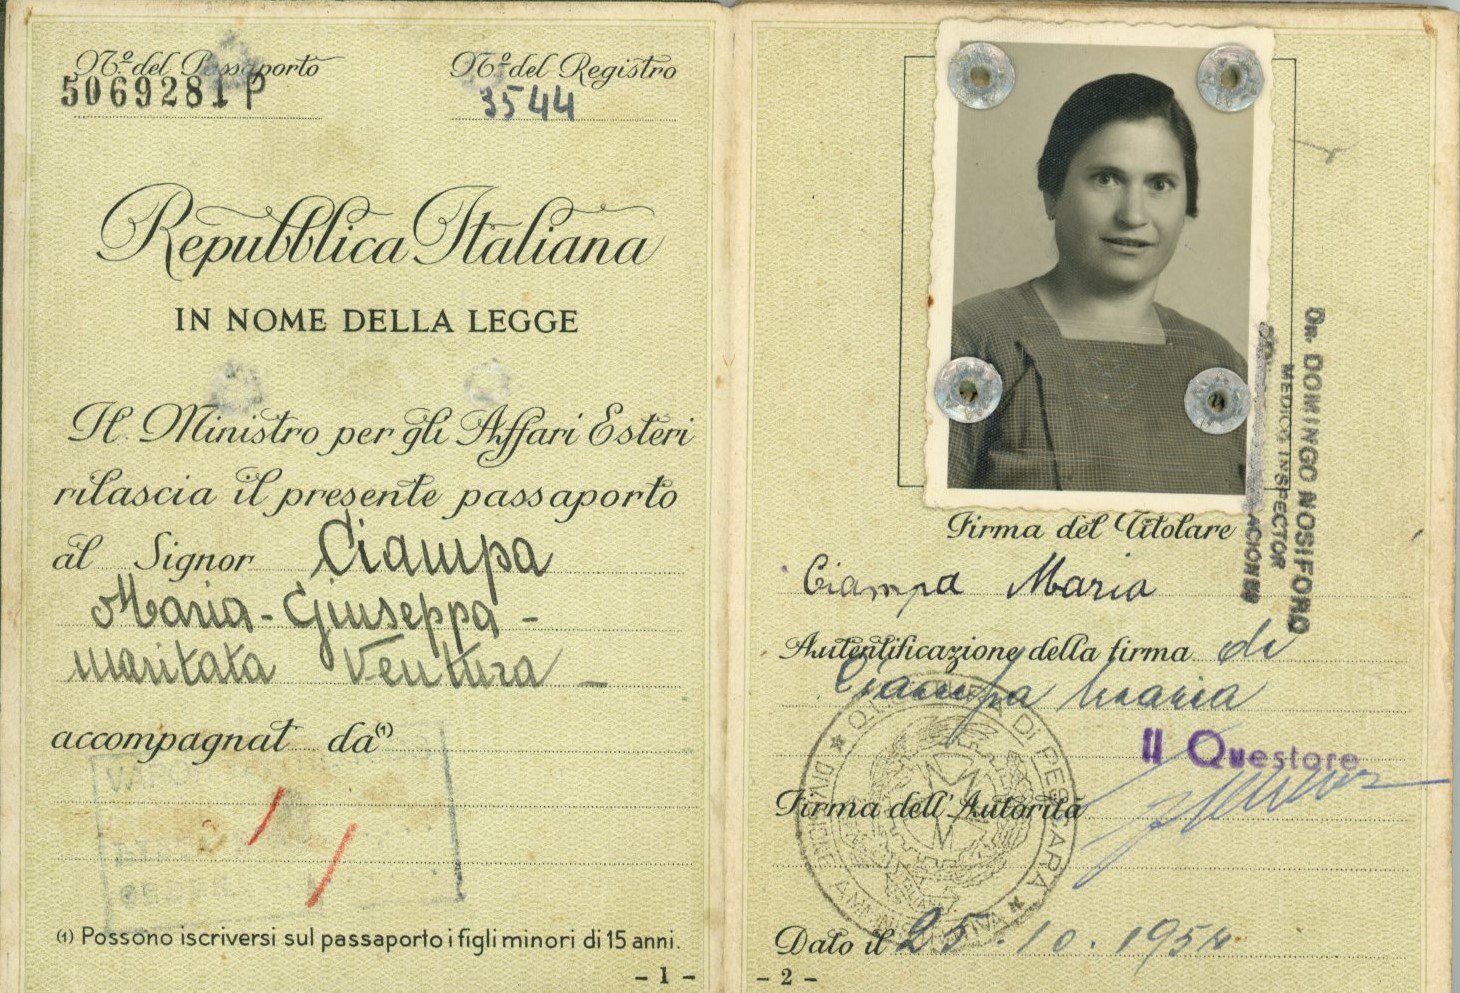 Nº del Passaporto
5069281 P
Nº del Registro
3544
Repubblica Italiana
IN NOME DELLA LEGGE
Il Ministro per gli Affari Esteri
rilascia il presente passaporto
al Signor Ciampa
Maria-Giuseppa-
maritata Ventura -
accompagnat da (1)
(1) Possono iscriversi sul passaporto i figli minori di 15 anni.
- 1 -
Dr. DOMINGO NOSIFORO
MEDICO INSPECTOR
Firma del Titolare
Ciampa Maria
Autentificazione della firma di
Ciampa Maria
Il Questore
Firma dell'Autorità
DI PESCARA
AMMINISTRATIVA
Dato il 25.10.1954
- 2 -